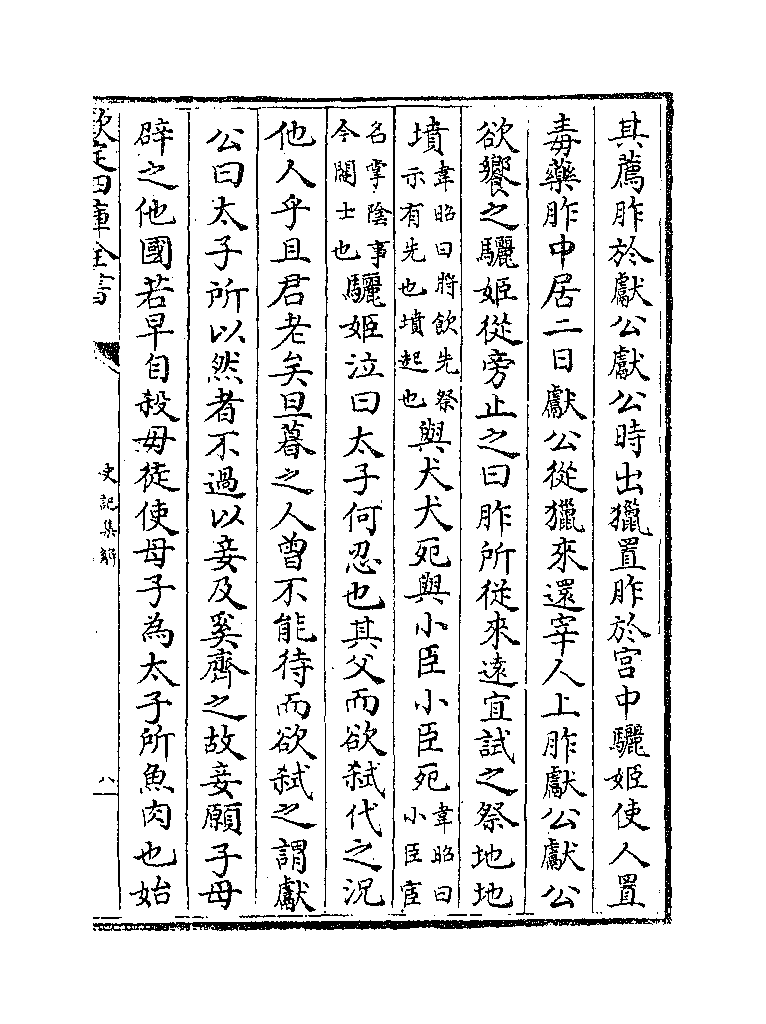 其薦胙於獻公獻公時出獵置胙於宫中驪姬使人置
毒藥胙中居二日獻公從獵來還宰人上胙獻公獻公
欲饗之驪姬從旁止之曰胙所從來遠宜試之祭地地
墳韋昭曰將飲先祭示有先也墳起也與犬犬死與小臣小臣死韋昭曰小臣宦
名掌陰事今閹士也驪姬泣曰太子何忍也其父而欲弑代之況
他人乎且君老矣旦暮之人曾不能待而欲弑之謂獻
公曰太子所以然者不過以妾及奚齊之故妾願子母
辟之他國若早自殺毋徒使母子為太子所魚肉也始
欽定四庫全書
史記集解
八